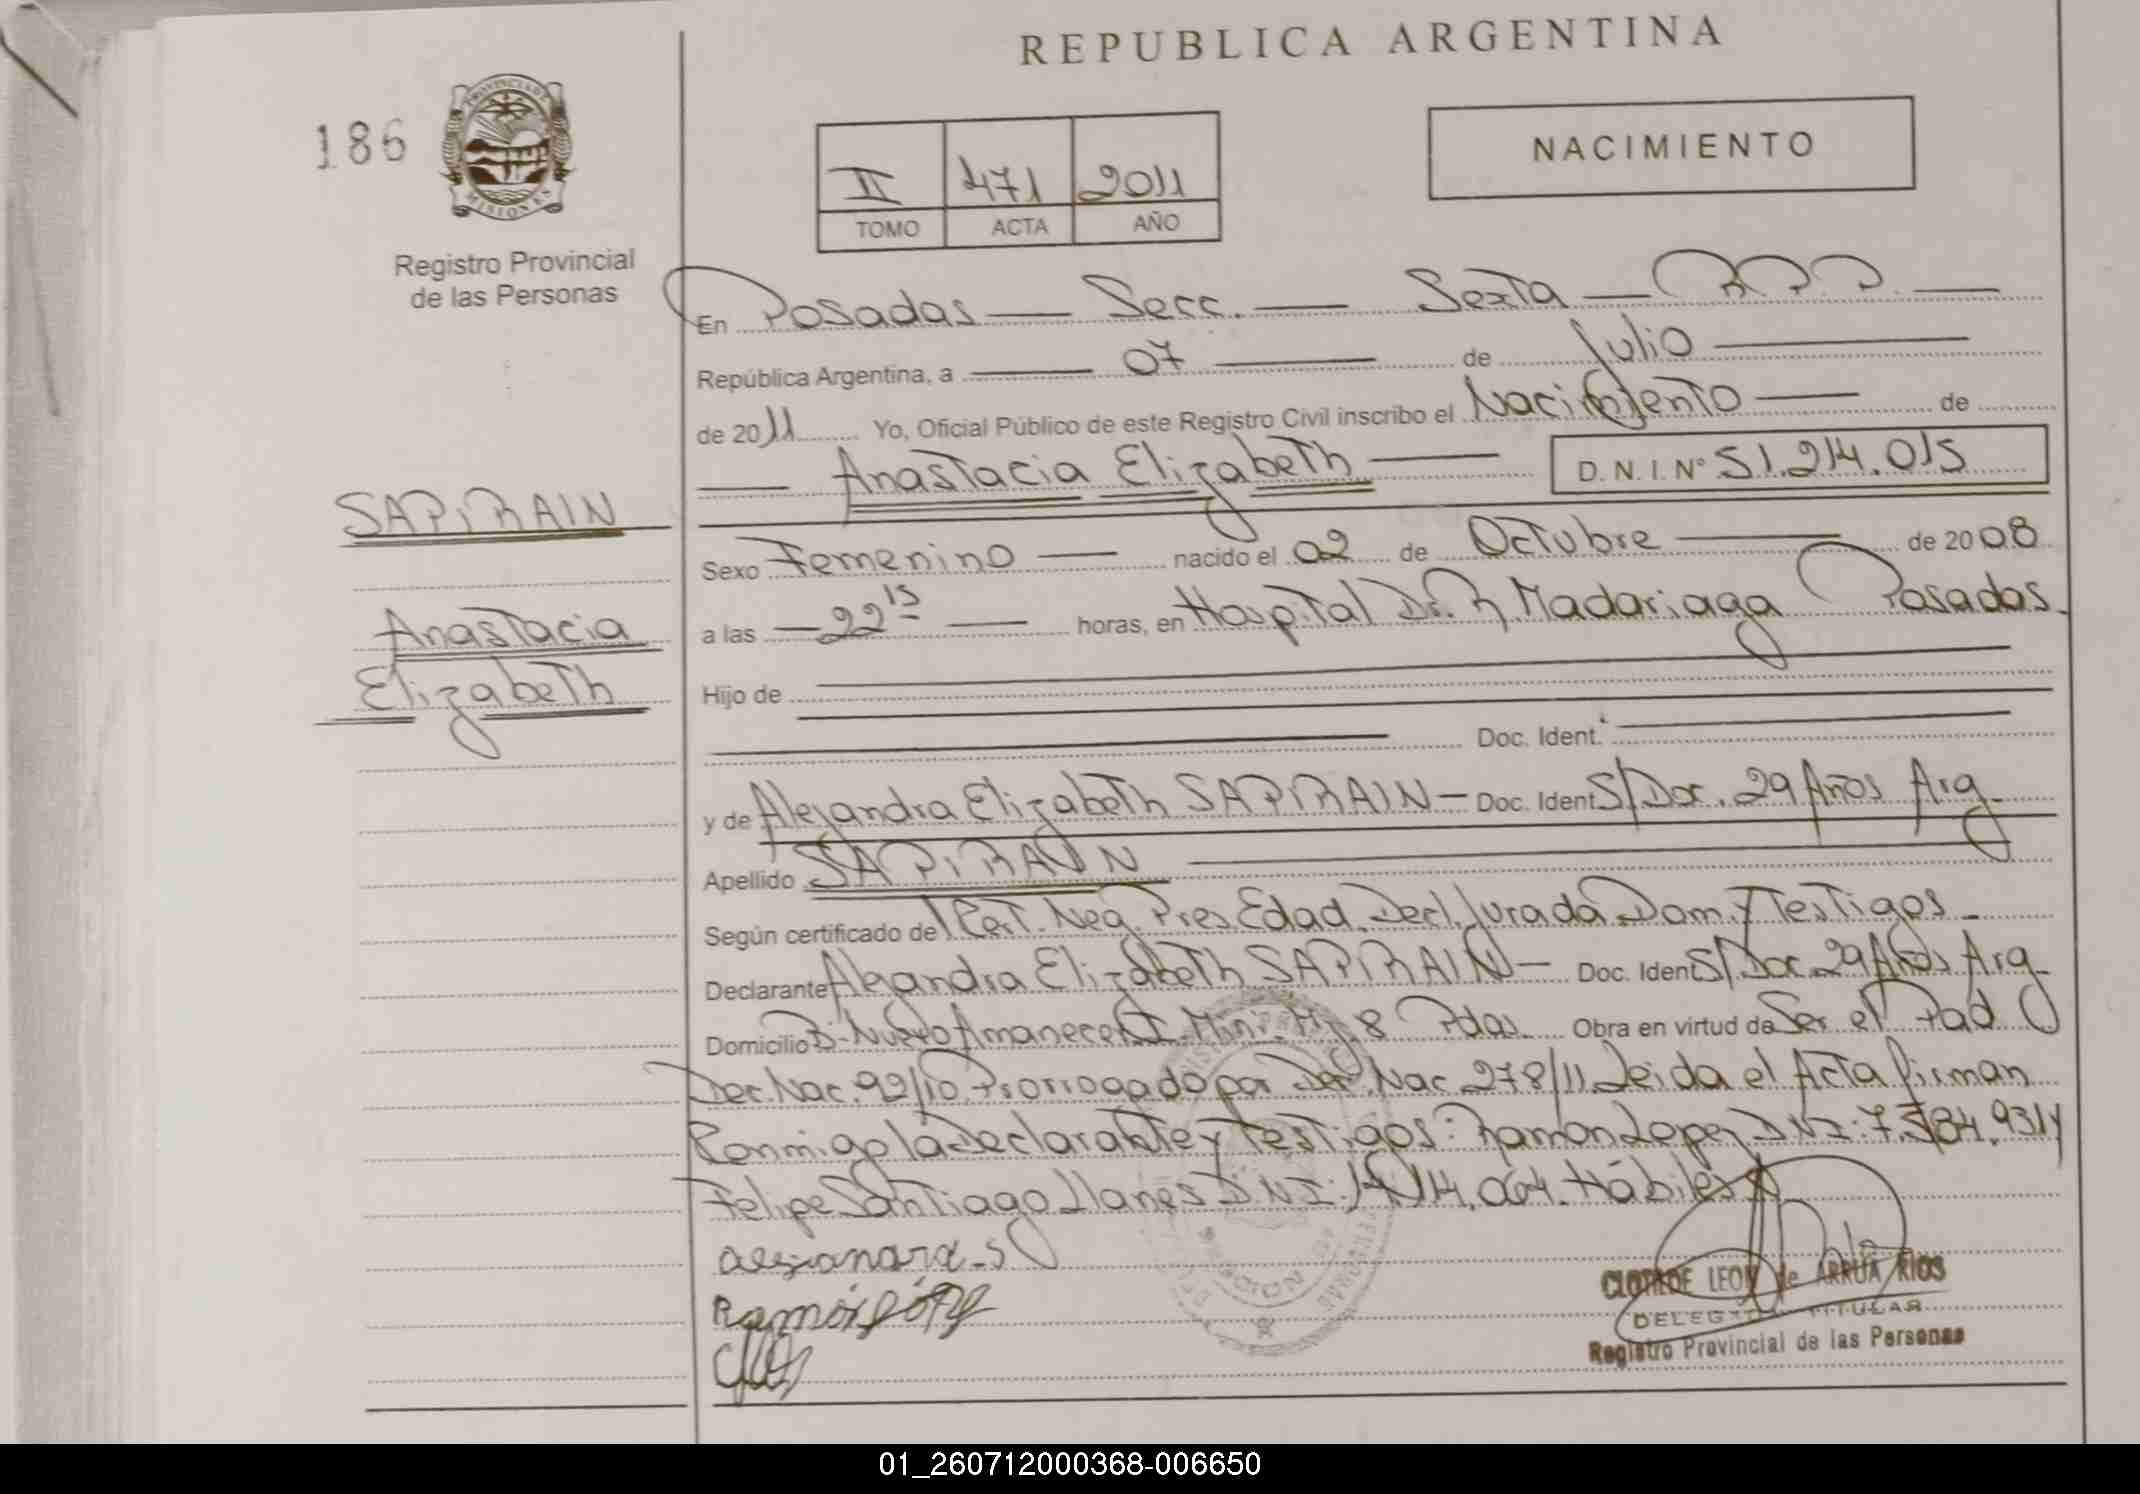 REPUBLICA ARGENTINA
186
PROVINCIA DE
MISIONES
Registro Provincial
de las Personas
II 471 2011
TOMO ACTA AÑO
NACIMIENTO
En Posadas — Secc. — Sexta — R.P.P. —
República Argentina, a — 07 — de Julio —
de 2011 Yo, Oficial Público de este Registro Civil inscribo el Nacimiento — de
— Anastacia Elizabeth — D.N.I. Nº 51.214.015
SAPIRAIN
Anastacia
Elizabeth
Sexo Femenino — nacido el 02 de Octubre — de 2008
a las — 22 15 — horas, en Hospital Dr. R. Madariaga Posadas.
Hijo de
Doc. Ident.
y de Alejandra Elizabeth SAPIRAIN — Doc. Ident S/Doc. 29 Años Arg.
Apellido SAPIRAIN
Según certificado de Cert. Neg. Pres. Edad. Decl. Jurada Dom. y Testigos.
Declarante Alejandra Elizabeth SAPIRAIN — Doc. Ident S/Doc. 29 Años Arg.
Domicilio B. Nuevo Amanecer 8 Pdas. Obra en virtud de Ser el Pad
Dec. Nac. 92/10 Prorrogado por Dec. Nac. 278/11 Leida el Acta firman
Conmigo la Declarante y Testigos: Ramon Lopez D.N.I: 7.584.931 y
Felipe Santiago Llanes D.N.I: 14.064. Hábiles
Ramón
CLOTILDE LEON de ARRUA RIOS
DELEGADA TITULAR
Registro Provincial de las Personas
01_260712000368-006650